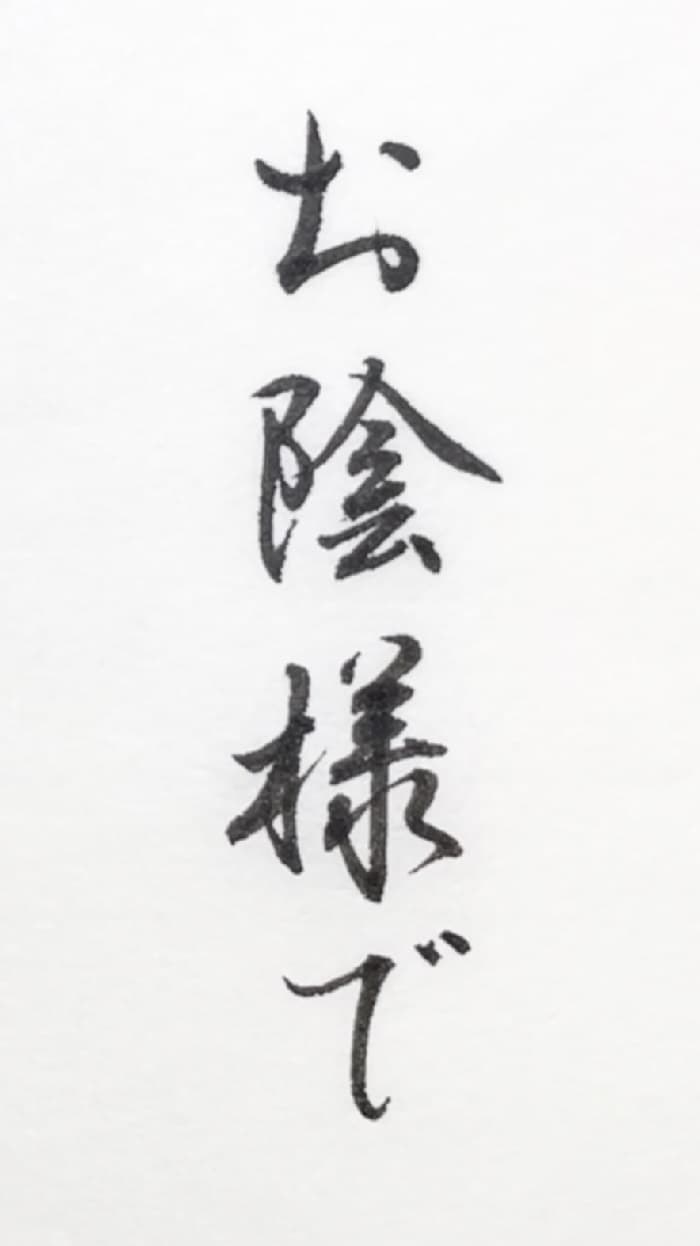 お陰様で